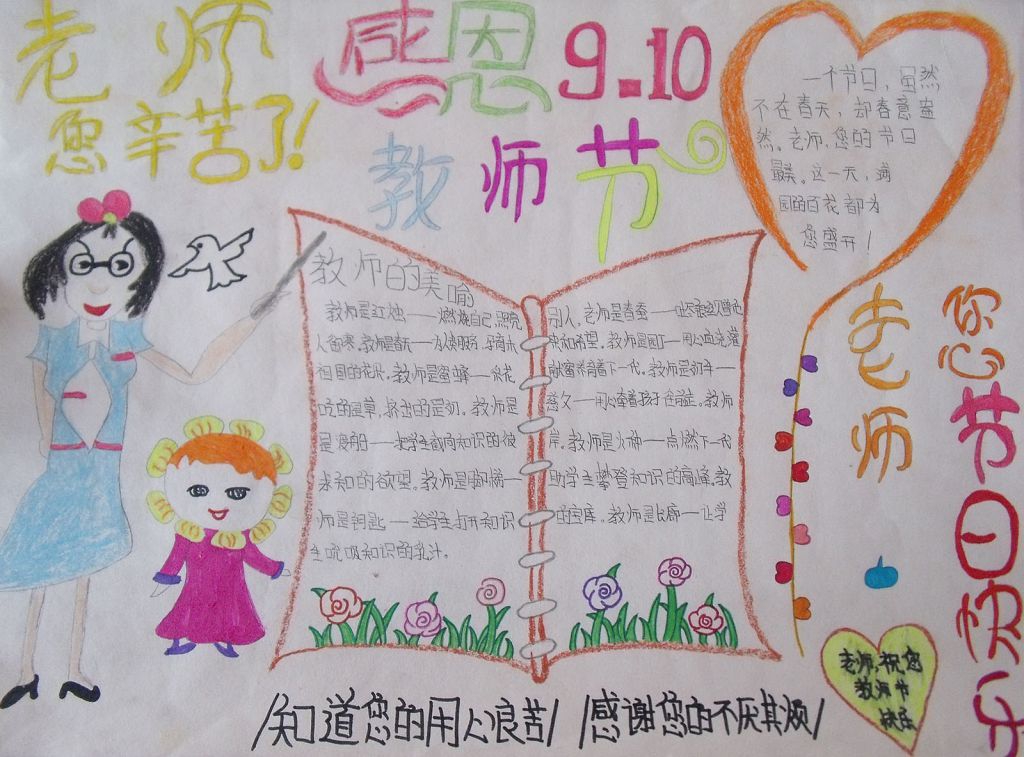 老师
您辛苦了!
感恩9.10
教师节
一个节日,虽然
不在春天,却春意盎
然。老师,您的节日
最美。这一天,满
园的百花都为
您盛开!
教师的美喻
教师是红烛——燃烧自己,照亮
别人。老师是春蚕——吐
人
教师是
和希望。教师是园丁——用心血浇灌
祖国的花朵。教师是蜜蜂——采花
酿蜜,培育着下一代。教师是
吃的是草,挤出的是奶。教师是
慈父——用心牵着孩子
教师
是渡船——把学生载向知识的彼
岸。教师是火种——点燃下一代
求知的欲望。教师是脚梯——
助学生攀登知识的高峰。教
师是钥匙——给学生打开知识
的宝库。教师是
——让学
生吮吸知识的乳汁。
老师
您节日快乐
老师,祝您
教师节
快乐
知道您的用心良苦
感谢您的不厌其烦